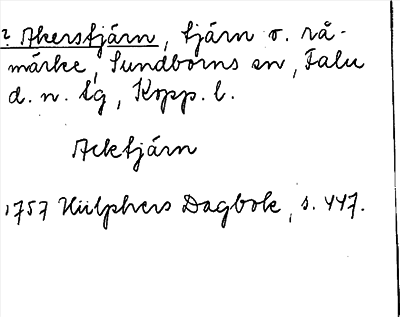 ? Akerstjärn, tjärn o. rå-
märke, Sundborns sn, Falu
d. n. tg, Kopp. l.
Acktjärn
1757 Hülphers Dagbok, s. 447.